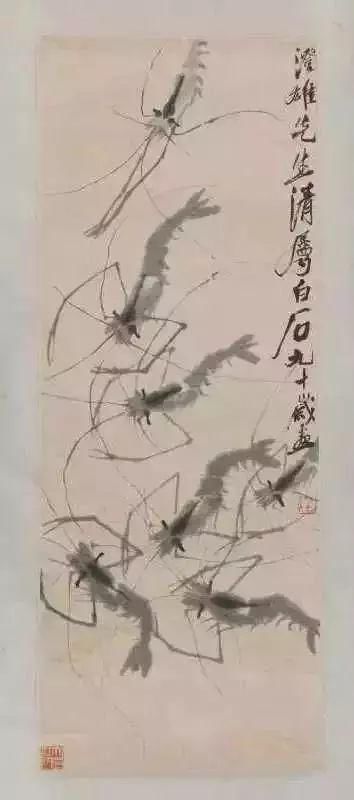 澄雄先生清属白石九十岁画